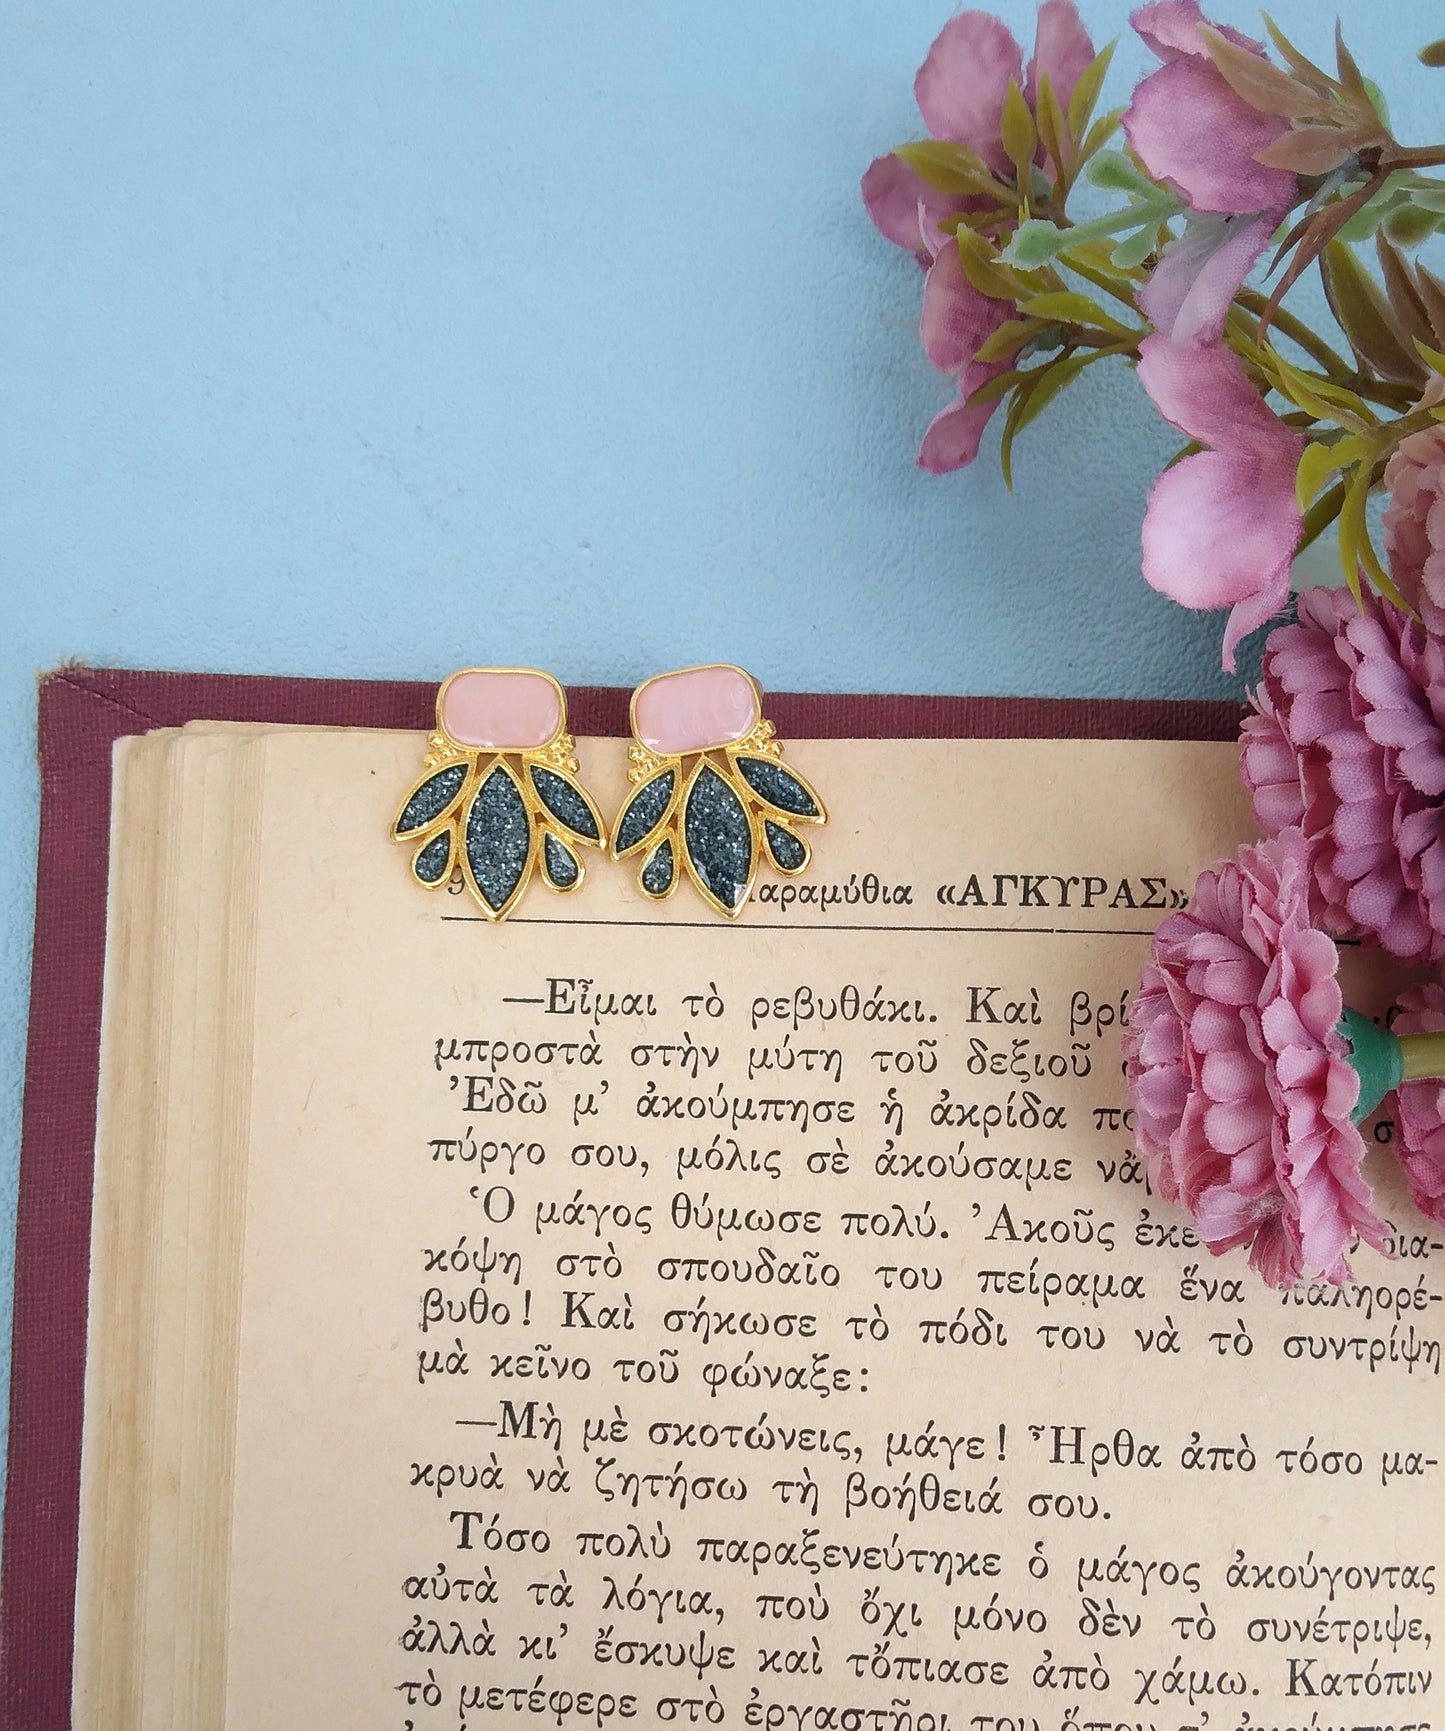 9
αραμύθια «ΑΓΚΥΡΑΣ»
—Εἶμαι τὸ ρεβυθάκι. Καὶ
μπροστὰ στὴν μύτη τοῦ δεξιοῦ
Ἐδῶ μ’ ἀκούμπησε ἡ ἀκρίδα
πύργο σου, μόλις σὲ ἀκούσαμε
Ὁ μάγος θύμωσε πολύ. Ἀκοῦς δια-
κόψη στὸ σπουδαῖο του πείραμα ἕνα παληορέ-
βυθο! Καὶ σήκωσε τὸ πόδι του νὰ τὸ συντρίψη
μὰ κεῖνο τοῦ φώναξε:
—Μὴ μὲ σκοτώνεις, μάγε! Ἦρθα ἀπὸ τόσο μα-
κρυὰ νὰ ζητήσω τὴ βοήθειά σου.
Τόσο πολὺ παραξενεύτηκε ὁ μάγος ἀκούγοντας
αὐτὰ τὰ λόγια, ποὺ ὄχι μόνο δὲν τὸ συνέτριψε,
ἀλλὰ κι’ ἔσκυψε καὶ τὄπιασε ἀπὸ χάμω. Κατόπιν
τὸ μετέφερε στὸ ἐργαστῆρι του ὅπου τ’ ἀκούμπησε